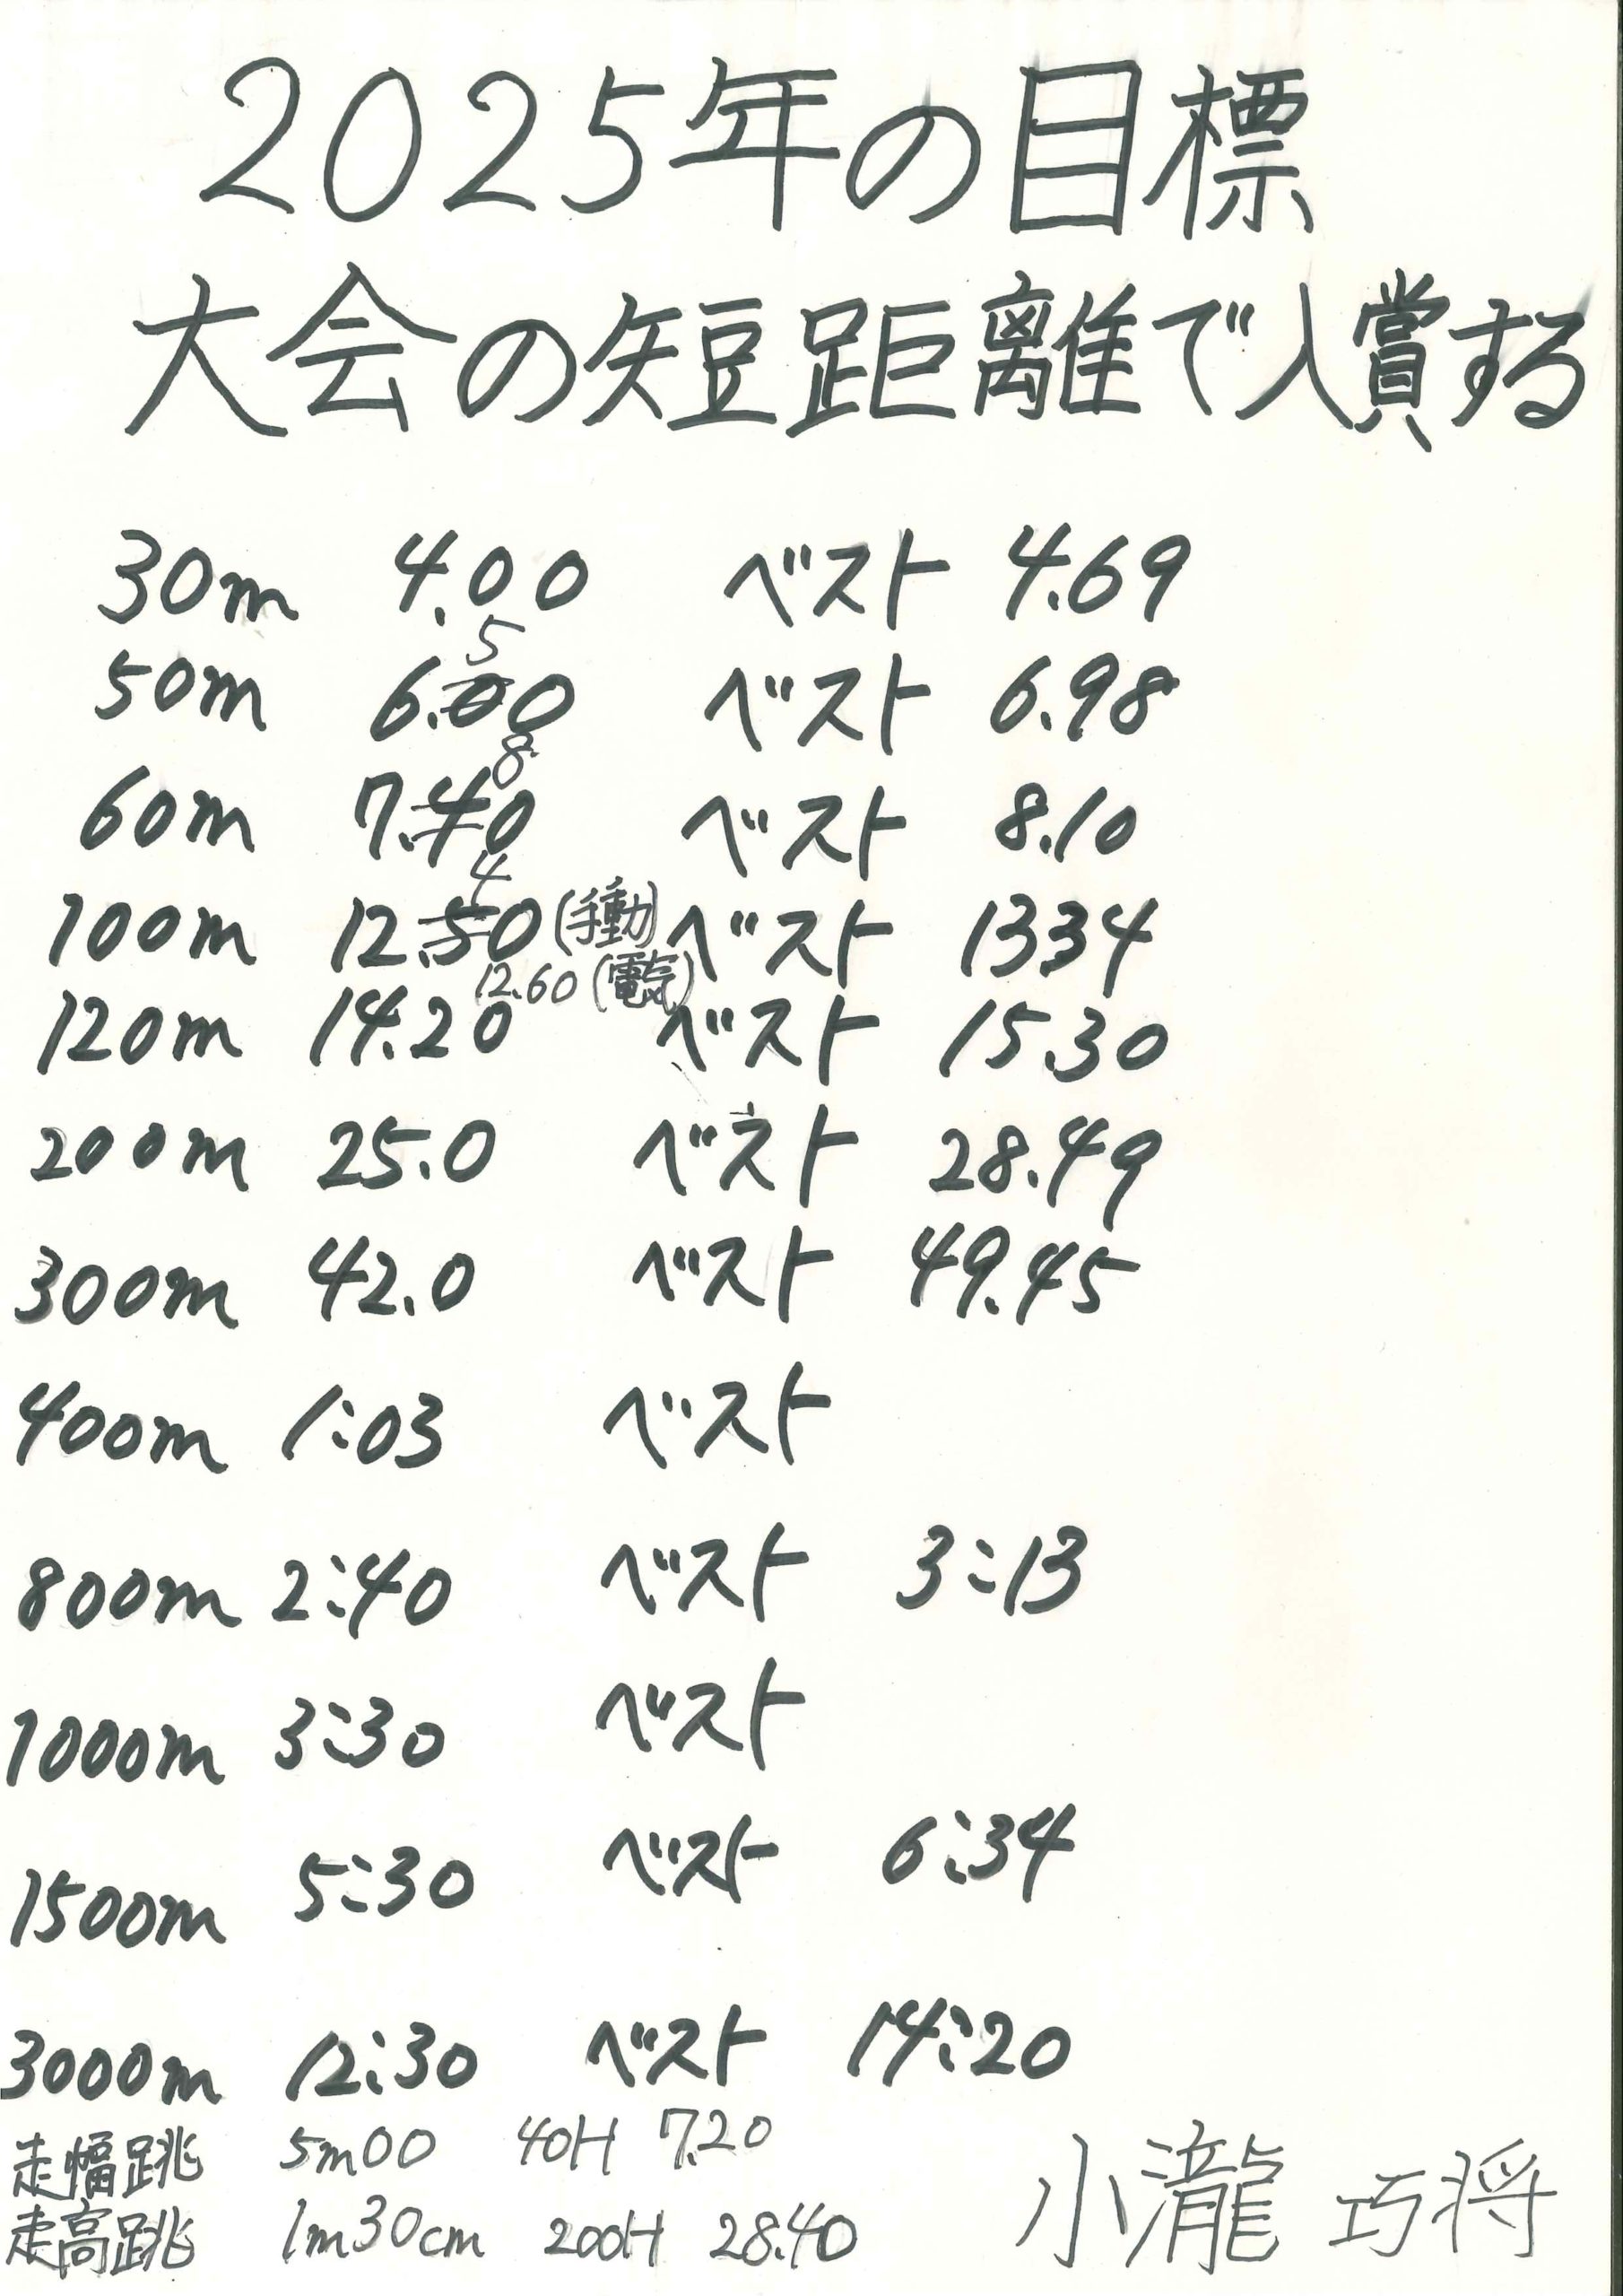 2025年の目標
大会の短距離で入賞する
30m 4.00 ベスト 4.69
5
50m 6.00 ベスト 6.98
8
60m 7.40 ベスト 8.10
4
100m 12.50 (手動) ベスト 13.34
12.60 (電気)
120m 14.20 ベスト 15.30
200m 25.0 ベスト 28.49
300m 42.0 ベスト 49.45
400m 1:03 ベスト
800m 2:40 ベスト 3:13
1000m 3:30 ベスト
1500m 5:30 ベスト 6:34
3000m 12:30 ベスト 14:20
走幅跳 5m00 40H 7.20
走高跳 1m30cm 200H 28.40
小瀧 巧将